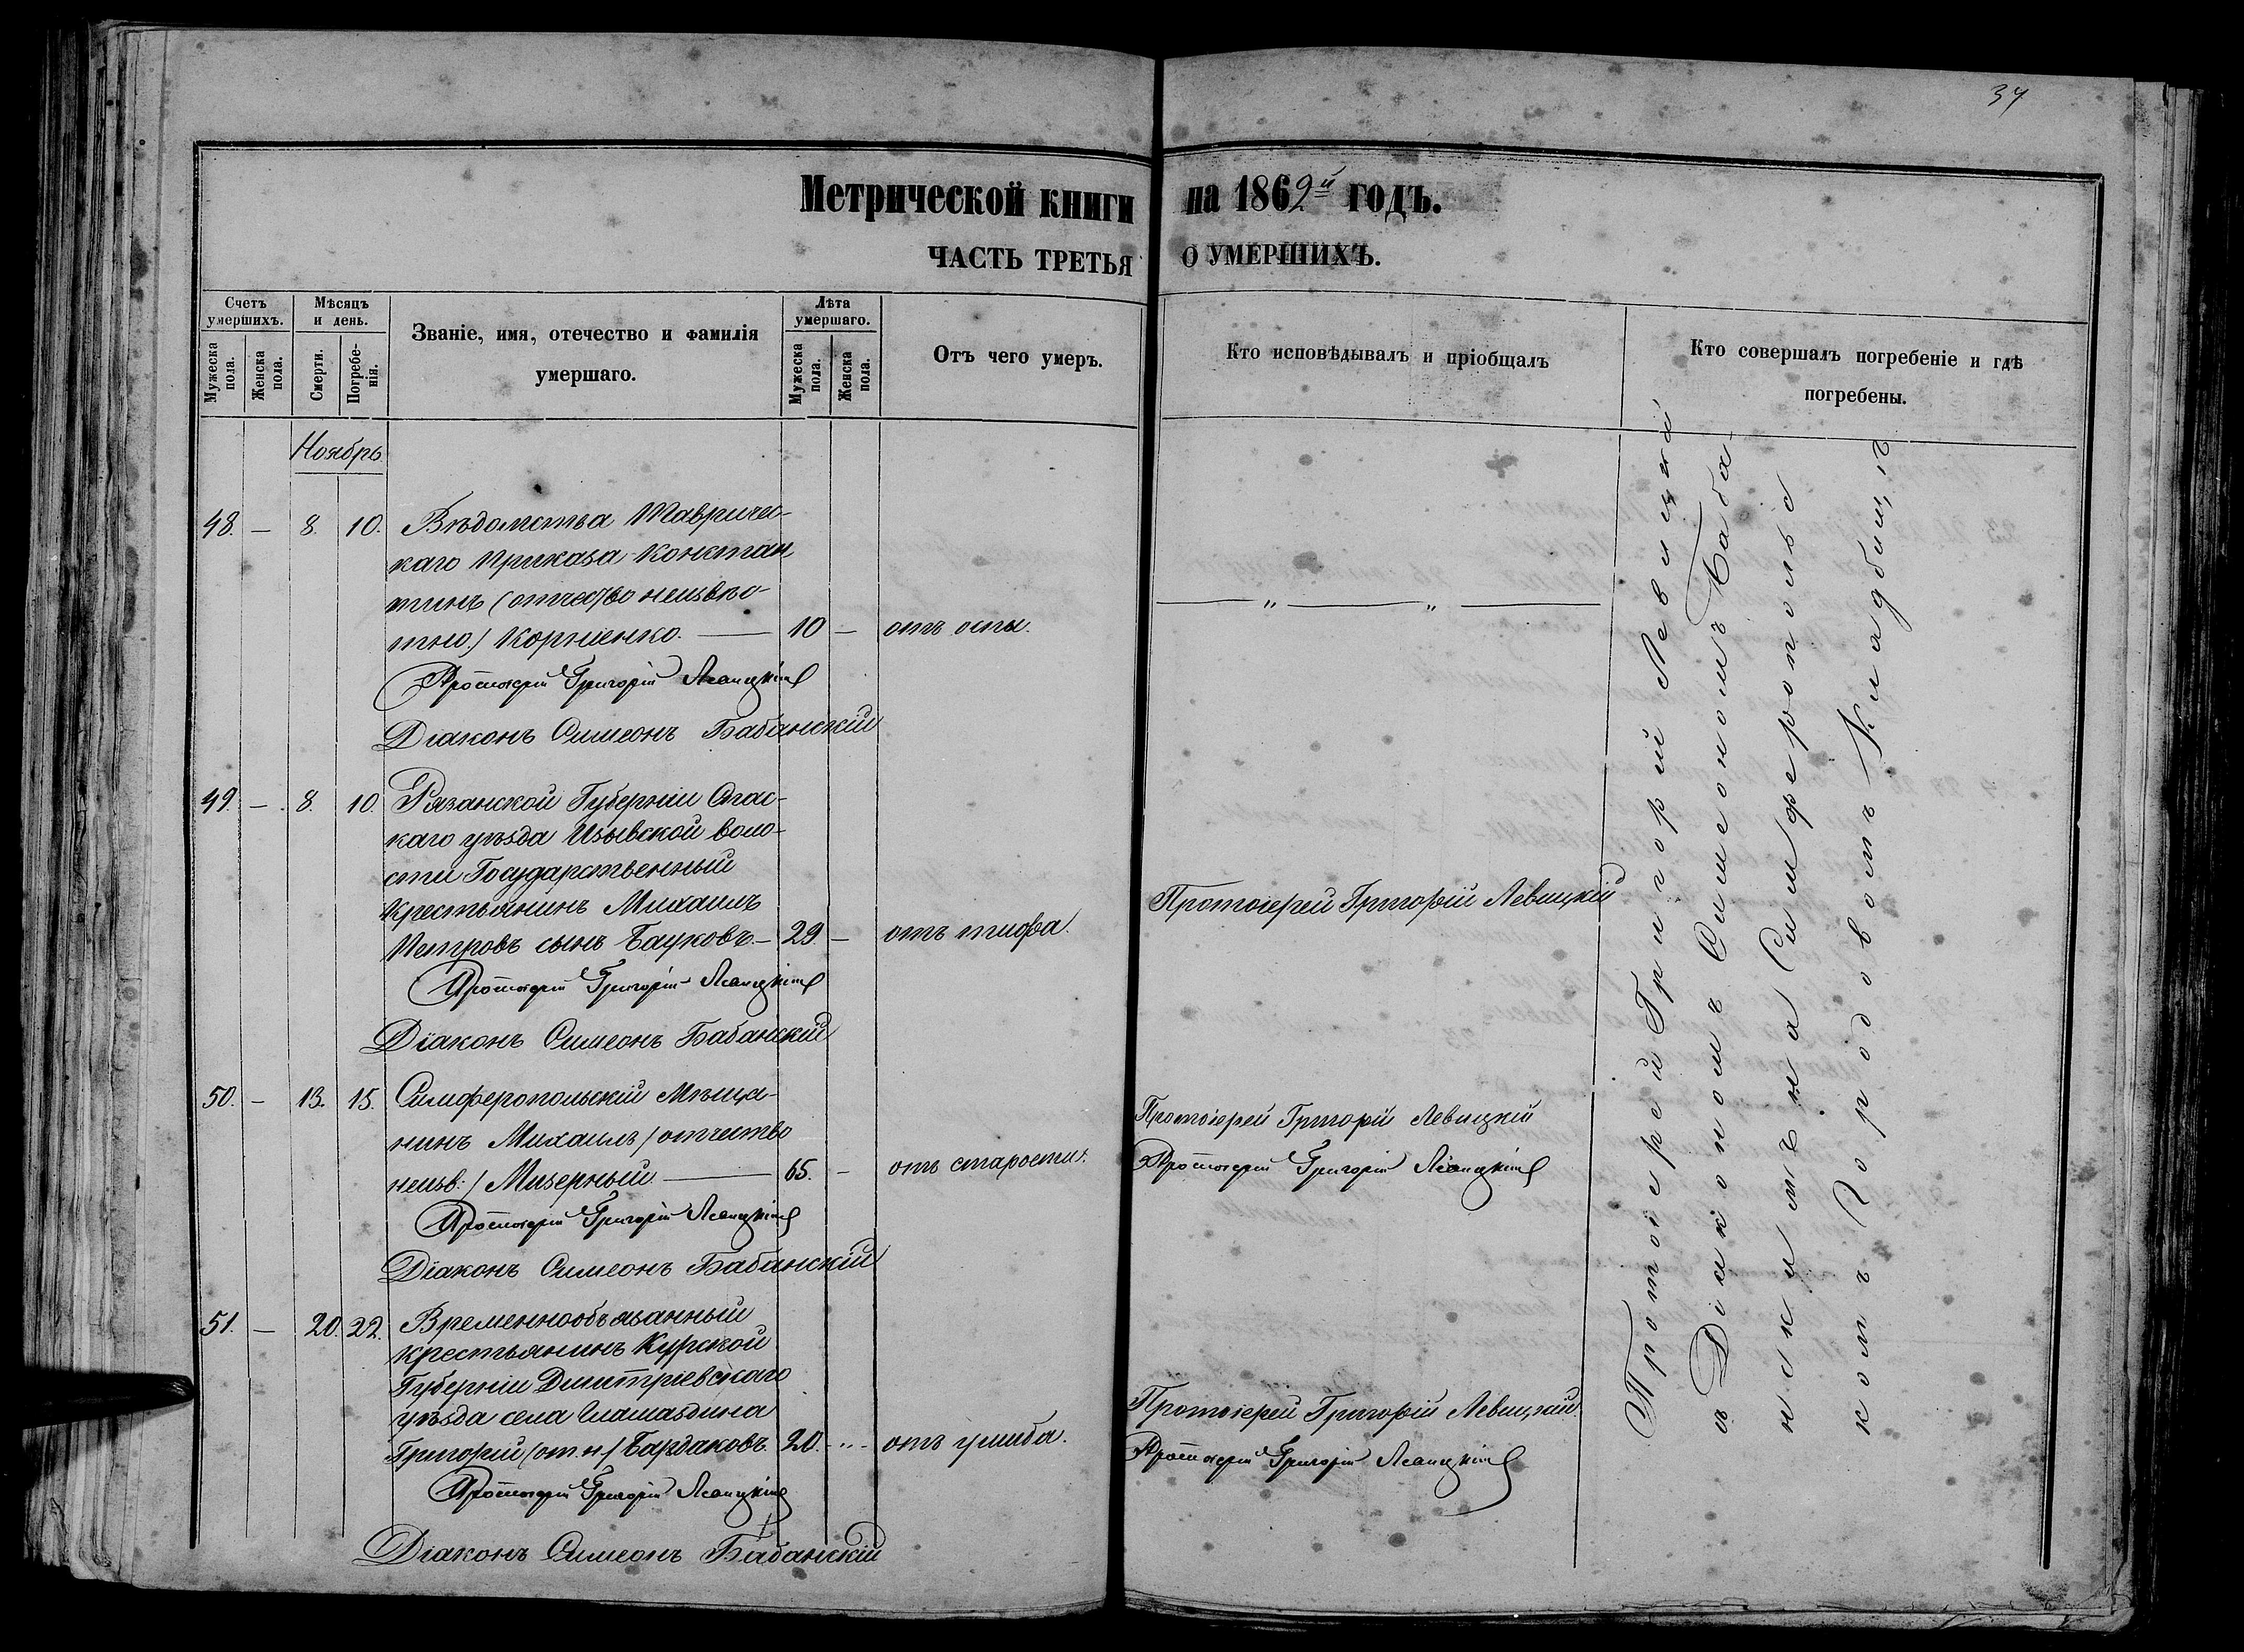 34
Метрической книги на 1862й годъ.
ЧАСТЬ ТРЕТЬЯ О УМЕРШИХЪ.
Счетъ умершихъ.
Мужеска пола.
Женска пола.
Мѣсяцъ и день.
Смерти.
Погребенія.
Званіе, имя, отечество и фамилія
умершаго.
Лѣта умершаго.
Мужеска пола.
Женска пола.
Отъ чего умеръ.
Кто исповѣдывалъ и пріобщалъ
Кто совершалъ погребеніе и гдѣ
погребены.
Ноябрь
48. — 8. 10. Вѣдомства Тавричес-
каго Приказа Констан
тинъ (отчество неизвѣс-
тно) Корніенко. — 10 — отъ оспы.
Протоіерей Григорій Левицкій
Діаконъ Симеонъ Бабанскій
49. — 8. 10. Рязанской Губерніи Спас-
каго уѣзда Изывской воло-
сти Государственный
Крестьянинъ Михаилъ
Петровъ сынъ Бауковъ. — 29. — отъ тифа.
Протоіерей Григорій Левицкій
Протоіерей Григорій Левицкій
Діаконъ Симеонъ Бабанскій
50. — 13. 15. Симферопольскій Мѣща-
нинъ Михаилъ (отчество
неизв.) Мизерный — 65. — отъ старости.
Протоіерей Григорій Левицкій
Протоіерей Григорій Левицкій
Протоіерей Григорій Левицкій
Діаконъ Симеонъ Бабанскій
51. — 20. 22. Временнообязанный
крестьянинъ Курской
Губерніи Дмитріевскаго
уѣзда села
Григорій (от. н.) Бардаковъ. 20. - " - отъ ушиба.
Протоіерей Григорій Левицкій
Протоіерей Григорій Левицкій.
Протоіерей Григорій Левицкій
Діаконъ Симеонъ Бабанскій
Протоіерей Григорій Левицкій
съ Діакономъ Симеономъ Баба-
нскимъ на Симферопольс
комъ Городовомъ Кладбищѣ